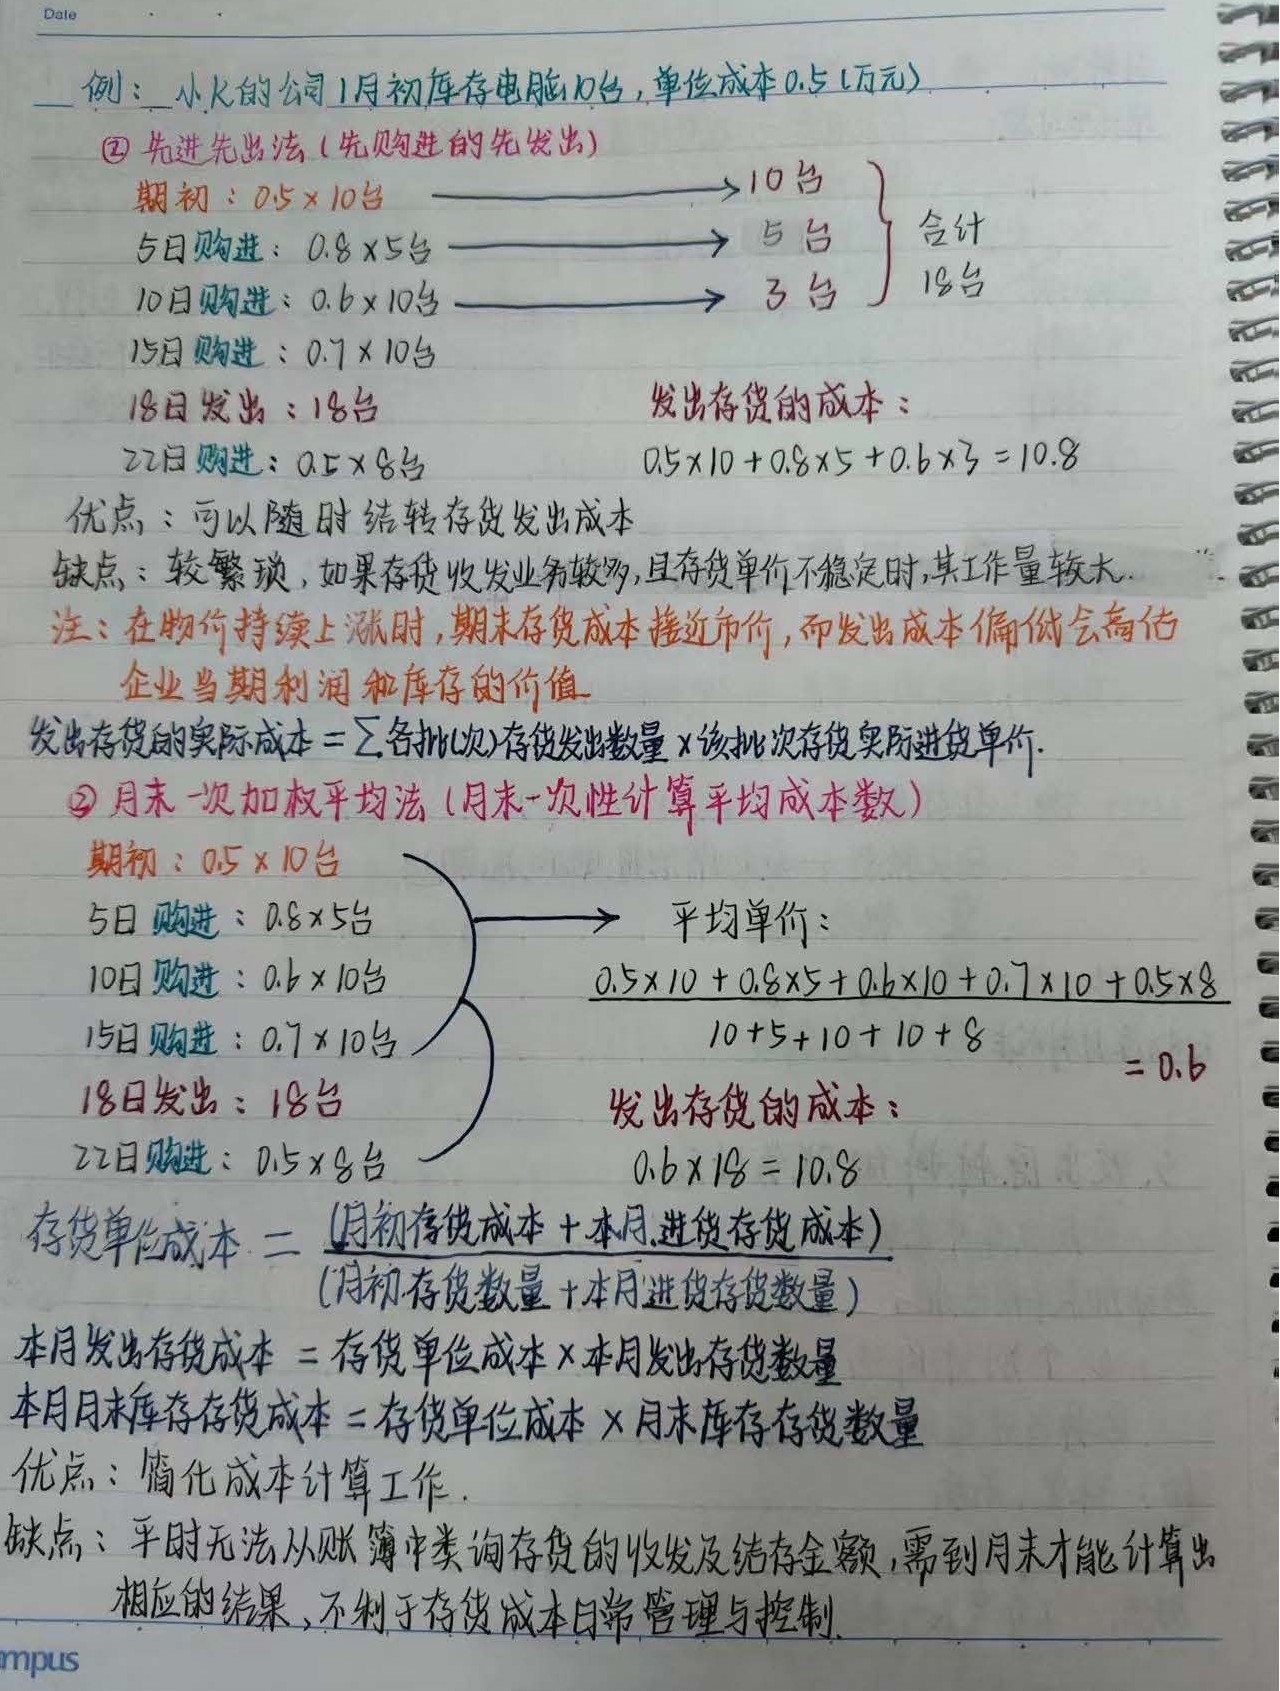 Date
例：小K的公司1月初库存电脑10台，单位成本0.5（万元）
② 先进先出法（先购进的先发出）
期初：0.5×10台 → 10台
5日购进：0.8×5台 → 5台
合计
10日购进：0.6×10台 → 3台
18台
15日购进：0.7×10台
18日发出：18台 发出存货的成本：
22日购进：0.5×8台 0.5×10+0.8×5+0.6×3=10.8
优点：可以随时结转存货发出成本
缺点：较繁琐，如果存货收发业务较多，且存货单价不稳定时，其工作量较大.
注：在物价持续上涨时，期末存货成本接近市价，而发出成本偏低会高估
企业当期利润和库存的价值
发出存货的实际成本=∑各批(次)存货发出数量×该批次存货实际进货单价.
② 月末一次加权平均法（月末一次性计算平均成本数）
期初：0.5×10台
5日购进：0.8×5台 → 平均单价：
10日购进：0.6×10台 0.5×10+0.8×5+0.6×10+0.7×10+0.5×8
15日购进：0.7×10台 10+5+10+10+8
=0.6
18日发出：18台 发出存货的成本：
22日购进：0.5×8台 0.6×18=10.8
存货单位成本= (月初存货成本+本月进货存货成本)
(月初存货数量+本月进货存货数量)
本月发出存货成本=存货单位成本×本月发出存货数量
本月月末库存存货成本=存货单位成本×月末库存存货数量
优点：简化成本计算工作.
缺点：平时无法从账簿中类询存货的收发及结存金额，需到月末才能计算出
相应的结果、不利于存货成本日常管理与控制.
mpus